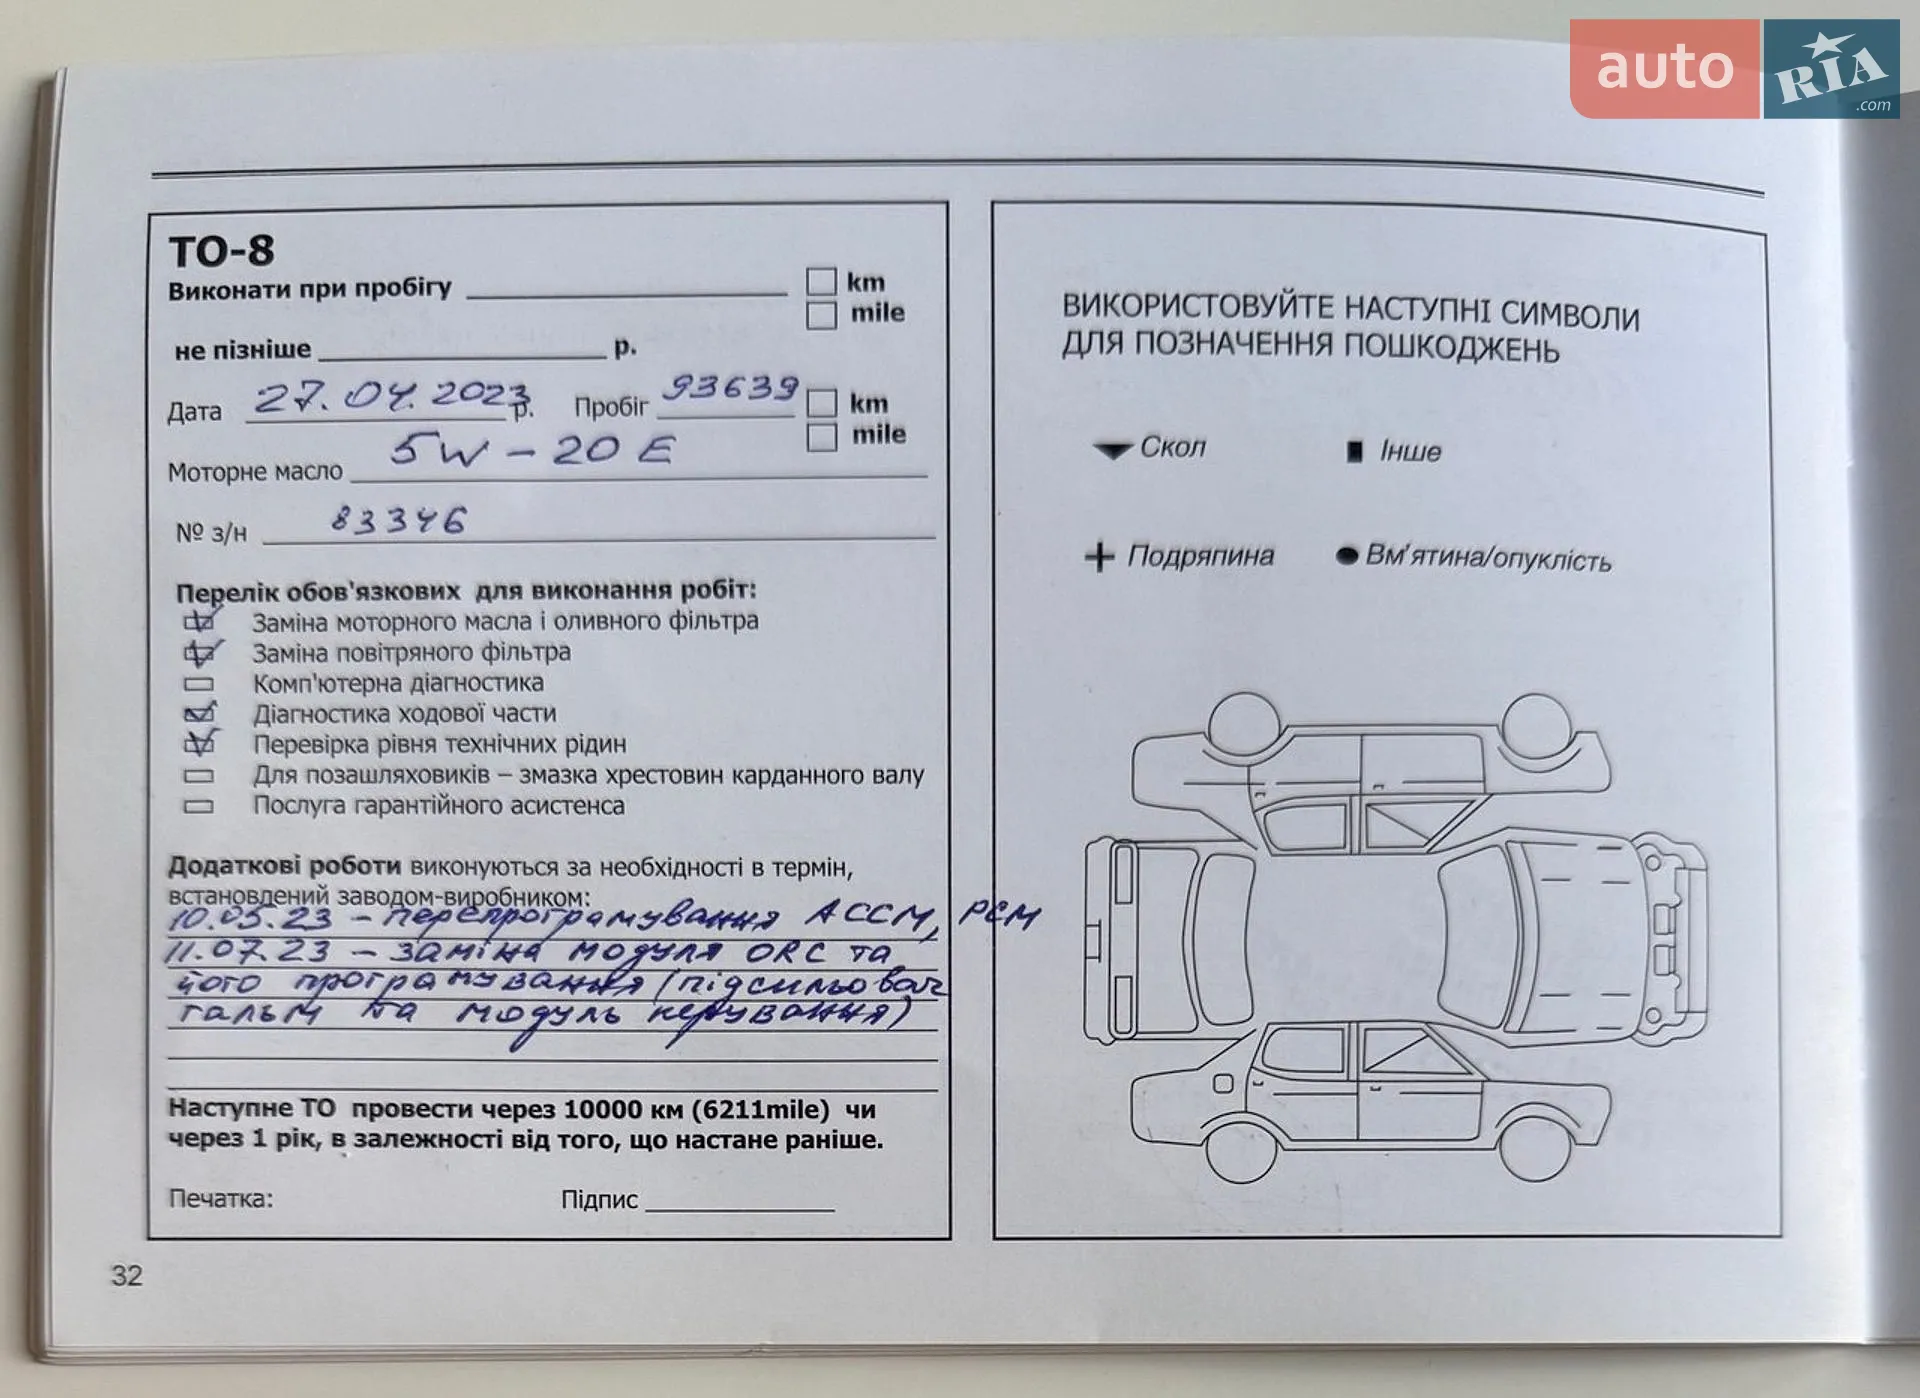 auto RIA .com
ТО-8
Виконати при пробігу km
mile
не пізніше р.
Дата 27.04.2023 р. Пробіг 93639 km
mile
Моторне масло 5W-20 E
№ з/н 83346
Перелік обов'язкових для виконання робіт:
Заміна моторного масла і оливного фільтра
Заміна повітряного фільтра
Комп'ютерна діагностика
Діагностика ходової части
Перевірка рівня технічних рідин
Для позашляховиків – змазка хрестовин карданного валу
Послуга гарантійного асистенса
Додаткові роботи виконуються за необхідності в термін,
встановлений заводом-виробником:
10.05.23 – перепрограмування АССМ, РСМ
11.07.23 – заміна модуля ORC та
його програмування (підсилювач
гальм та модуль керування)
Наступне ТО провести через 10000 км (6211mile) чи
через 1 рік, в залежності від того, що настане раніше.
Печатка: Підпис
32
ВИКОРИСТОВУЙТЕ НАСТУПНІ СИМВОЛИ
ДЛЯ ПОЗНАЧЕННЯ ПОШКОДЖЕНЬ
Скол Інше
Подряпина Вм'ятина/опуклість